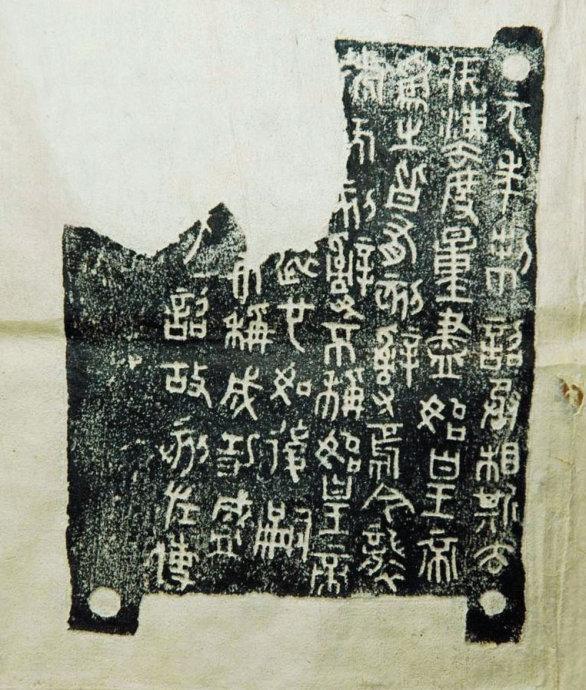 元年制詔丞相斯去
疾灋度量盡始皇帝
為之皆有刻辭焉今襲
號而刻辭不稱始皇帝
也如後嗣
不稱成功盛
詔故刻左使